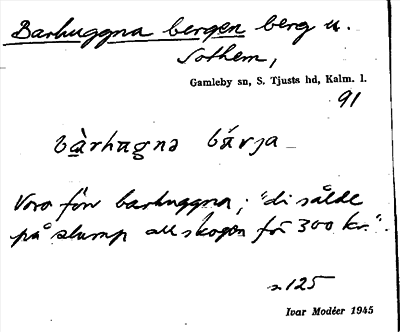 Barhuggna bergen berg u.
Sothem,
Gamleby sn, S. Tjusts hd, Kalm. l.
91
bàrhagnə bárja
Voro förr barhuggna; "di sålde
på slump all skogen för 300 kr.".
125
Ivar Modéer 1945